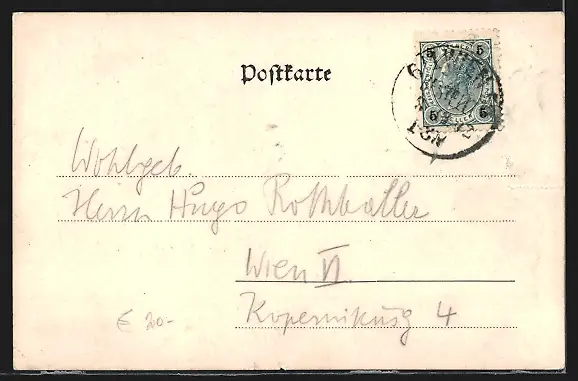 Postkarte
5 5
5 5
Wohlgeb.
Herrn Hugo Rothballer
Wien VI.
Kopernikusg 4
€ 20-